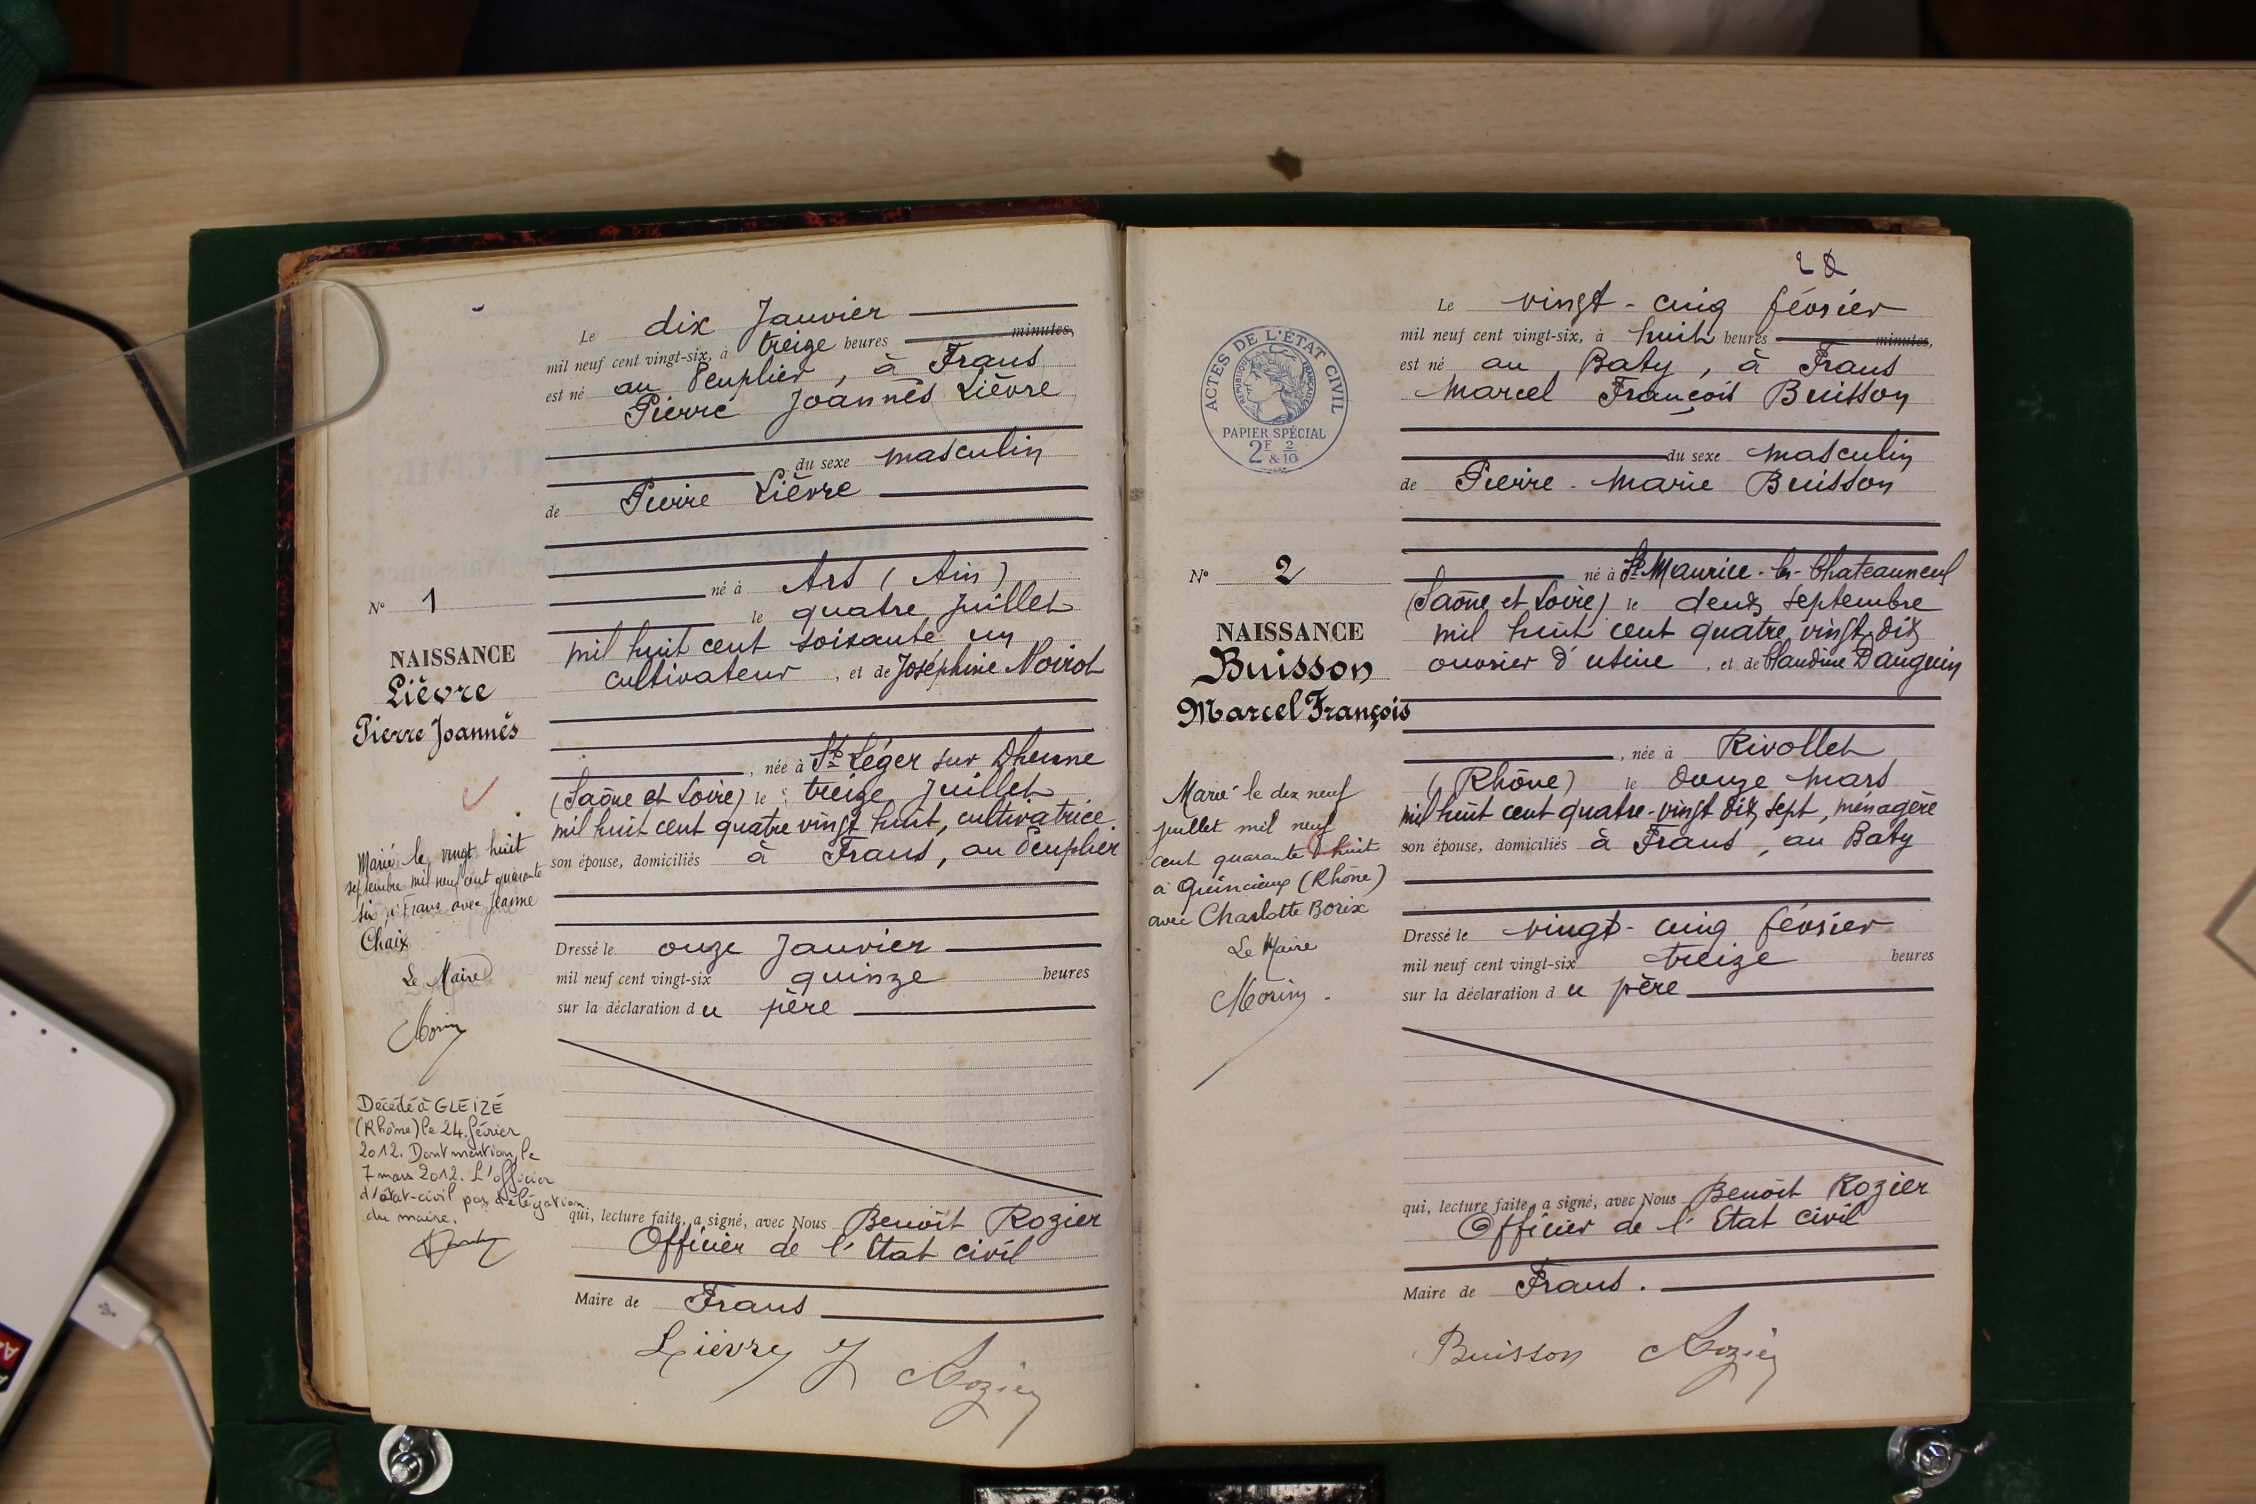 Le dix Janvier
mil neuf cent vingt-six, à treize heures minutes,
est né au Peuplier, à Frans
Pierre Joannès Lièvre
du sexe masculin
de Pierre Lièvre
né à Ars (Ain)
le quatre Juillet
mil huit cent soixante un
cultivateur, et de Joséphine Noirot
, née à St Léger sur Dheune
(Saône et Loire) le treize Juillet
mil huit cent quatre vingt huit, cultivatrice
son épouse, domiciliés à Frans, au Peuplier
Dressé le onze Janvier
mil neuf cent vingt-six quinze heures
sur la déclaration du père
qui, lecture faite, a signé, avec Nous Benoît Rozier
Officier de l'Etat civil
Maire de Frans
Lièvre J Rozier
N° 1
NAISSANCE
Lièvre
Pierre Joannès
Marié le vingt huit
septembre mil neuf cent quarante
six à Frans avec Jeanne
Chaix
Le Maire
Morin
Décédé à GLEIZÉ
(Rhône) le 24 février
2012. Dont mention, le
7 mars 2012. L'officier
d'état-civil par délégation
du maire.
Le vingt-cinq février
mil neuf cent vingt-six, à huit heures minutes,
est né au Baty, à Frans
Marcel François Buisson
du sexe masculin
de Pierre-Marie Buisson
né à St Maurice-les-Chateauneuf
(Saône et Loire) le deux septembre
mil huit cent quatre vingt dix
ouvrier d'usine, et de Claudine Dauguin
, née à Rivollet
(Rhône) le douze mars
mil huit cent quatre-vingt dix sept, ménagère
son épouse, domiciliés à Frans, au Baty
Dressé le vingt-cinq février
mil neuf cent vingt-six treize heures
sur la déclaration du père
qui, lecture faite, a signé, avec Nous Benoît Rozier
Officier de l'Etat civil
Maire de Frans.
Buisson Rozier
ACTES DE L'ÉTAT CIVIL
RÉPUBLIQUE FRANÇAISE
PAPIER SPÉCIAL
2F & 2/10
N° 2
NAISSANCE
Buisson
Marcel François
Marié le dix neuf
juillet mil neuf
cent quarante huit
à Quincieux (Rhône)
avec Charlotte Borix
Le Maire
Morin